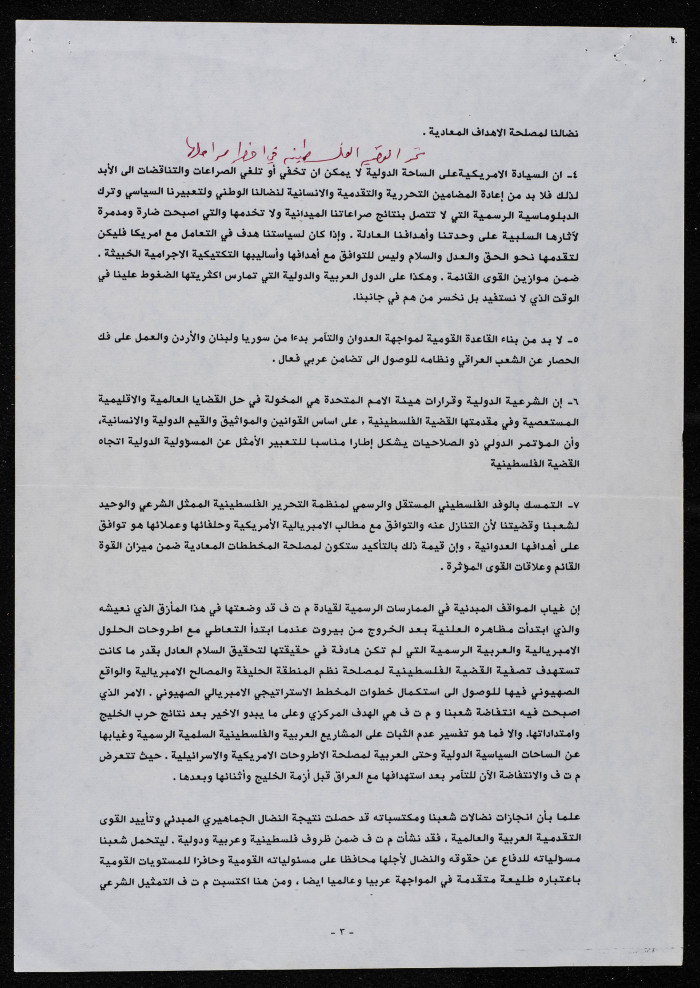 نضالنا لمصلحة الاهداف المعادية .
تمر القضية الفلسطينية في اخطر مراحلها
٤- ان السيادة الامريكيةعلى الساحة الدولية لا يمكن ان تخفي أو تلغي الصراعات والتناقضات الى الأبد
لذلك فلا بد من إعادة المضامين التحررية والتقدمية والانسانية لنضالنا الوطني ولتعبيرنا السياسي وترك
الدبلوماسية الرسمية التي لا تتصل بنتائج صراعاتنا الميدانية ولا تخدمها والتي اصبحت ضارة ومدمرة
لآثارها السلبية على وحدتنا وأهدافنا العادلة . وإذا كان لسياستنا هدف في التعامل مع امريكا فليكن
لتقدمها نحو الحق والعدل والسلام وليس للتوافق مع أهدافها وأساليبها التكتيكية الاجرامية الخبيثة .
ضمن موازين القوى القائمة . وهكذا على الدول العربية والدولية التي تمارس اكثريتها الضغوط علينا في
الوقت الذي لا نستفيد بل نخسر من هم في جانبنا.
٥- لا بد من بناء القاعدة القومية لمواجهة العدوان والتآمر بدءا من سوريا ولبنان والأردن والعمل على فك
الحصار عن الشعب العراقي ونظامه للوصول الى تضامن عربي فعال .
٦- إن الشرعية الدولية وقرارات هيئة الامم المتحدة هي المخولة في حل القضايا العالمية والاقليمية
المستعصية وفي مقدمتها القضية الفلسطينية , على اساس القوانين والمواثيق والقيم الدولية والانسانية،
وأن المؤتمر الدولي ذو الصلاحيات يشكل إطارا مناسبا للتعبير الأمثل عن المسؤولية الدولية اتجاه
القضية الفلسطينية
٧- التمسك بالوفد الفلسطيني المستقل والرسمي لمنظمة التحرير الفلسطينية الممثل الشرعي والوحيد
لشعبنا وقضيتنا لأن التنازل عنه والتوافق مع مطالب الامبريالية الأمريكية وحلفائها وعملائها هو توافق
على أهدافها العدوانية , وإن قيمة ذلك بالتأكيد ستكون لمصلحة المخططات المعادية ضمن ميزان القوة
القائم وعلاقات القوى المؤثرة .
إن غياب المواقف المبدئية في الممارسات الرسمية لقيادة م ت ف قد وضعتها في هذا المأزق الذي نعيشه
والذي ابتدأت مظاهره العلنية بعد الخروج من بيروت عندما ابتدأ التعاطي مع اطروحات الحلول
الامبريالية والعربية الرسمية التي لم تكن هادفة في حقيقتها لتحقيق السلام العادل بقدر ما كانت
تستهدف تصفية القضية الفلسطينية لمصلحة نظم المنطقة الحليفة والمصالح الامبريالية والواقع
الصهيوني فيها للوصول الى استكمال خطوات المخطط الاستراتيجي الامبريالي الصهيوني . الامر الذي
اصبحت فيه انتفاضة شعبنا و م ت ف هي الهدف المركزي وعلى ما يبدو الاخير بعد نتائج حرب الخليج
وامتداداتها. والا فما هو تفسير عدم الثبات على المشاريع العربية والفلسطينية السلمية الرسمية وغيابها
عن الساحات السياسية الدولية وحتى العربية لمصلحة الاطروحات الامريكية والاسرائيلية . حيث تتعرض
م ت ف والانتفاضة الآن للتآمر بعد استهدافها مع العراق قبل أزمة الخليج وأثنائها وبعدها .
علما بأن انجازات نضالات شعبنا ومكتسباته قد حصلت نتيجة النضال الجماهيري المبدئي وتأييد القوى
التقدمية العربية والعالمية ، فقد نشأت م ت ف ضمن ظروف فلسطينية وعربية ودولية . ليتحمل شعبنا
مسؤلياته للدفاع عن حقوقه والنضال لأجلها محافظا على مسئولياته القومية وحافزا للمستويات القومية
باعتباره طليعة متقدمة في المواجهة عربيا وعالميا ايضا ، ومن هنا اكتسبت م ت ف التمثيل الشرعي
- ٣ -